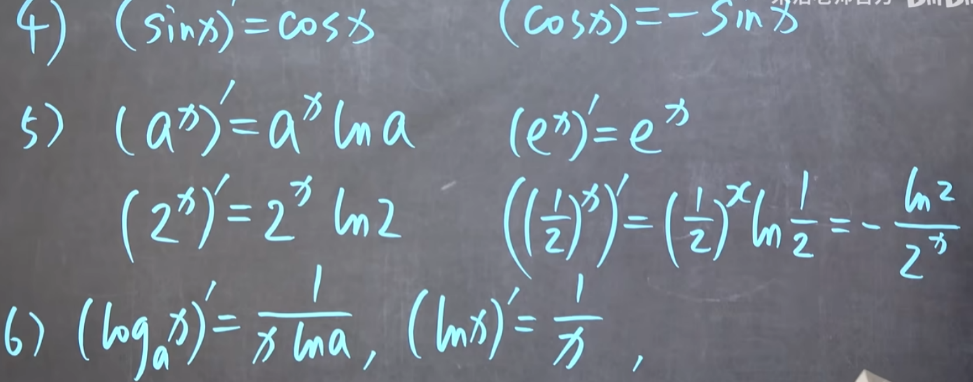 4) (sinx)' = cosx (cosx) = -sinx
5) (aˣ)' = aˣ ln a (eˣ)' = eˣ
(2ˣ)' = 2ˣ ln 2 ((1/2)ˣ)' = (1/2)ˣ ln 1/2 = - ln2/2ˣ
6) (logₐx)' = 1/(x ln a), (lnx)' = 1/x,